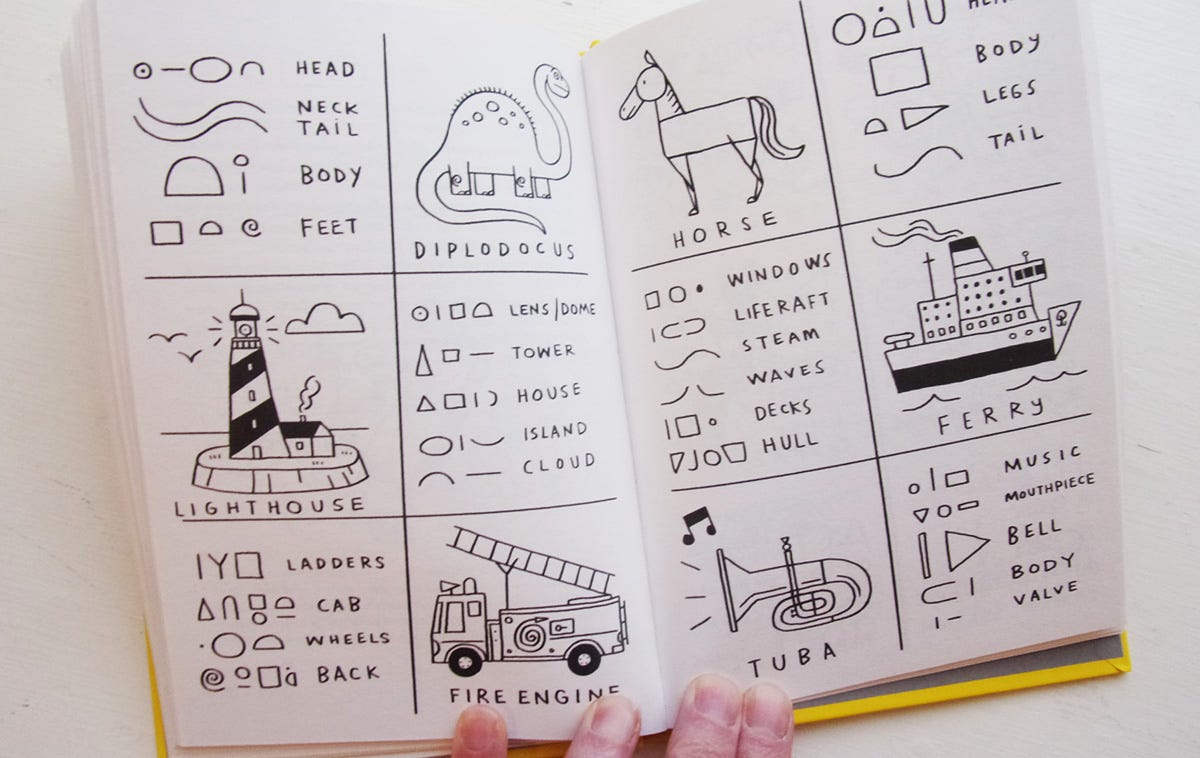 HEAD
NECK
TAIL
BODY
FEET
DIPLODOCUS
LENS/DOME
TOWER
HOUSE
ISLAND
CLOUD
LIGHTHOUSE
LADDERS
CAB
WHEELS
BACK
FIRE ENGINE
HORSE
BODY
LEGS
TAIL
WINDOWS
LIFERAFT
STEAM
WAVES
DECKS
HULL
FERRY
TUBA
MUSIC
MOUTHPIECE
BELL
BODY
VALVE